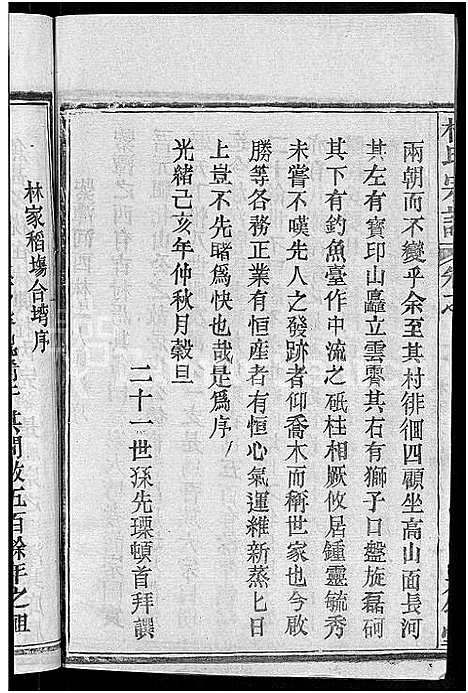 林氏宗譜
兩朝而不變乎余至其村徘徊四顧坐高山面長河
其左有寶印山矗立雲霽其右有獅子口盤旋磊砢
其下有釣魚臺作中流之砥柱相厥攸居鍾靈毓秀
未嘗不嘆先人之發跡者仰喬木而稱世家也今啟
勝等各務正業有恒產者有恒心氣運維新蒸七日
上豈不先睹爲快也哉是爲序
光緒己亥年仲秋月穀旦
二十一世孫先瑮頓首拜譔
林家稻塲合塆序
其間數五百餘年之祖